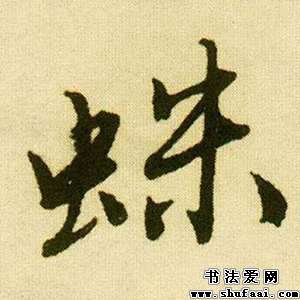 蛛
书法爱网
www.shufaai.com